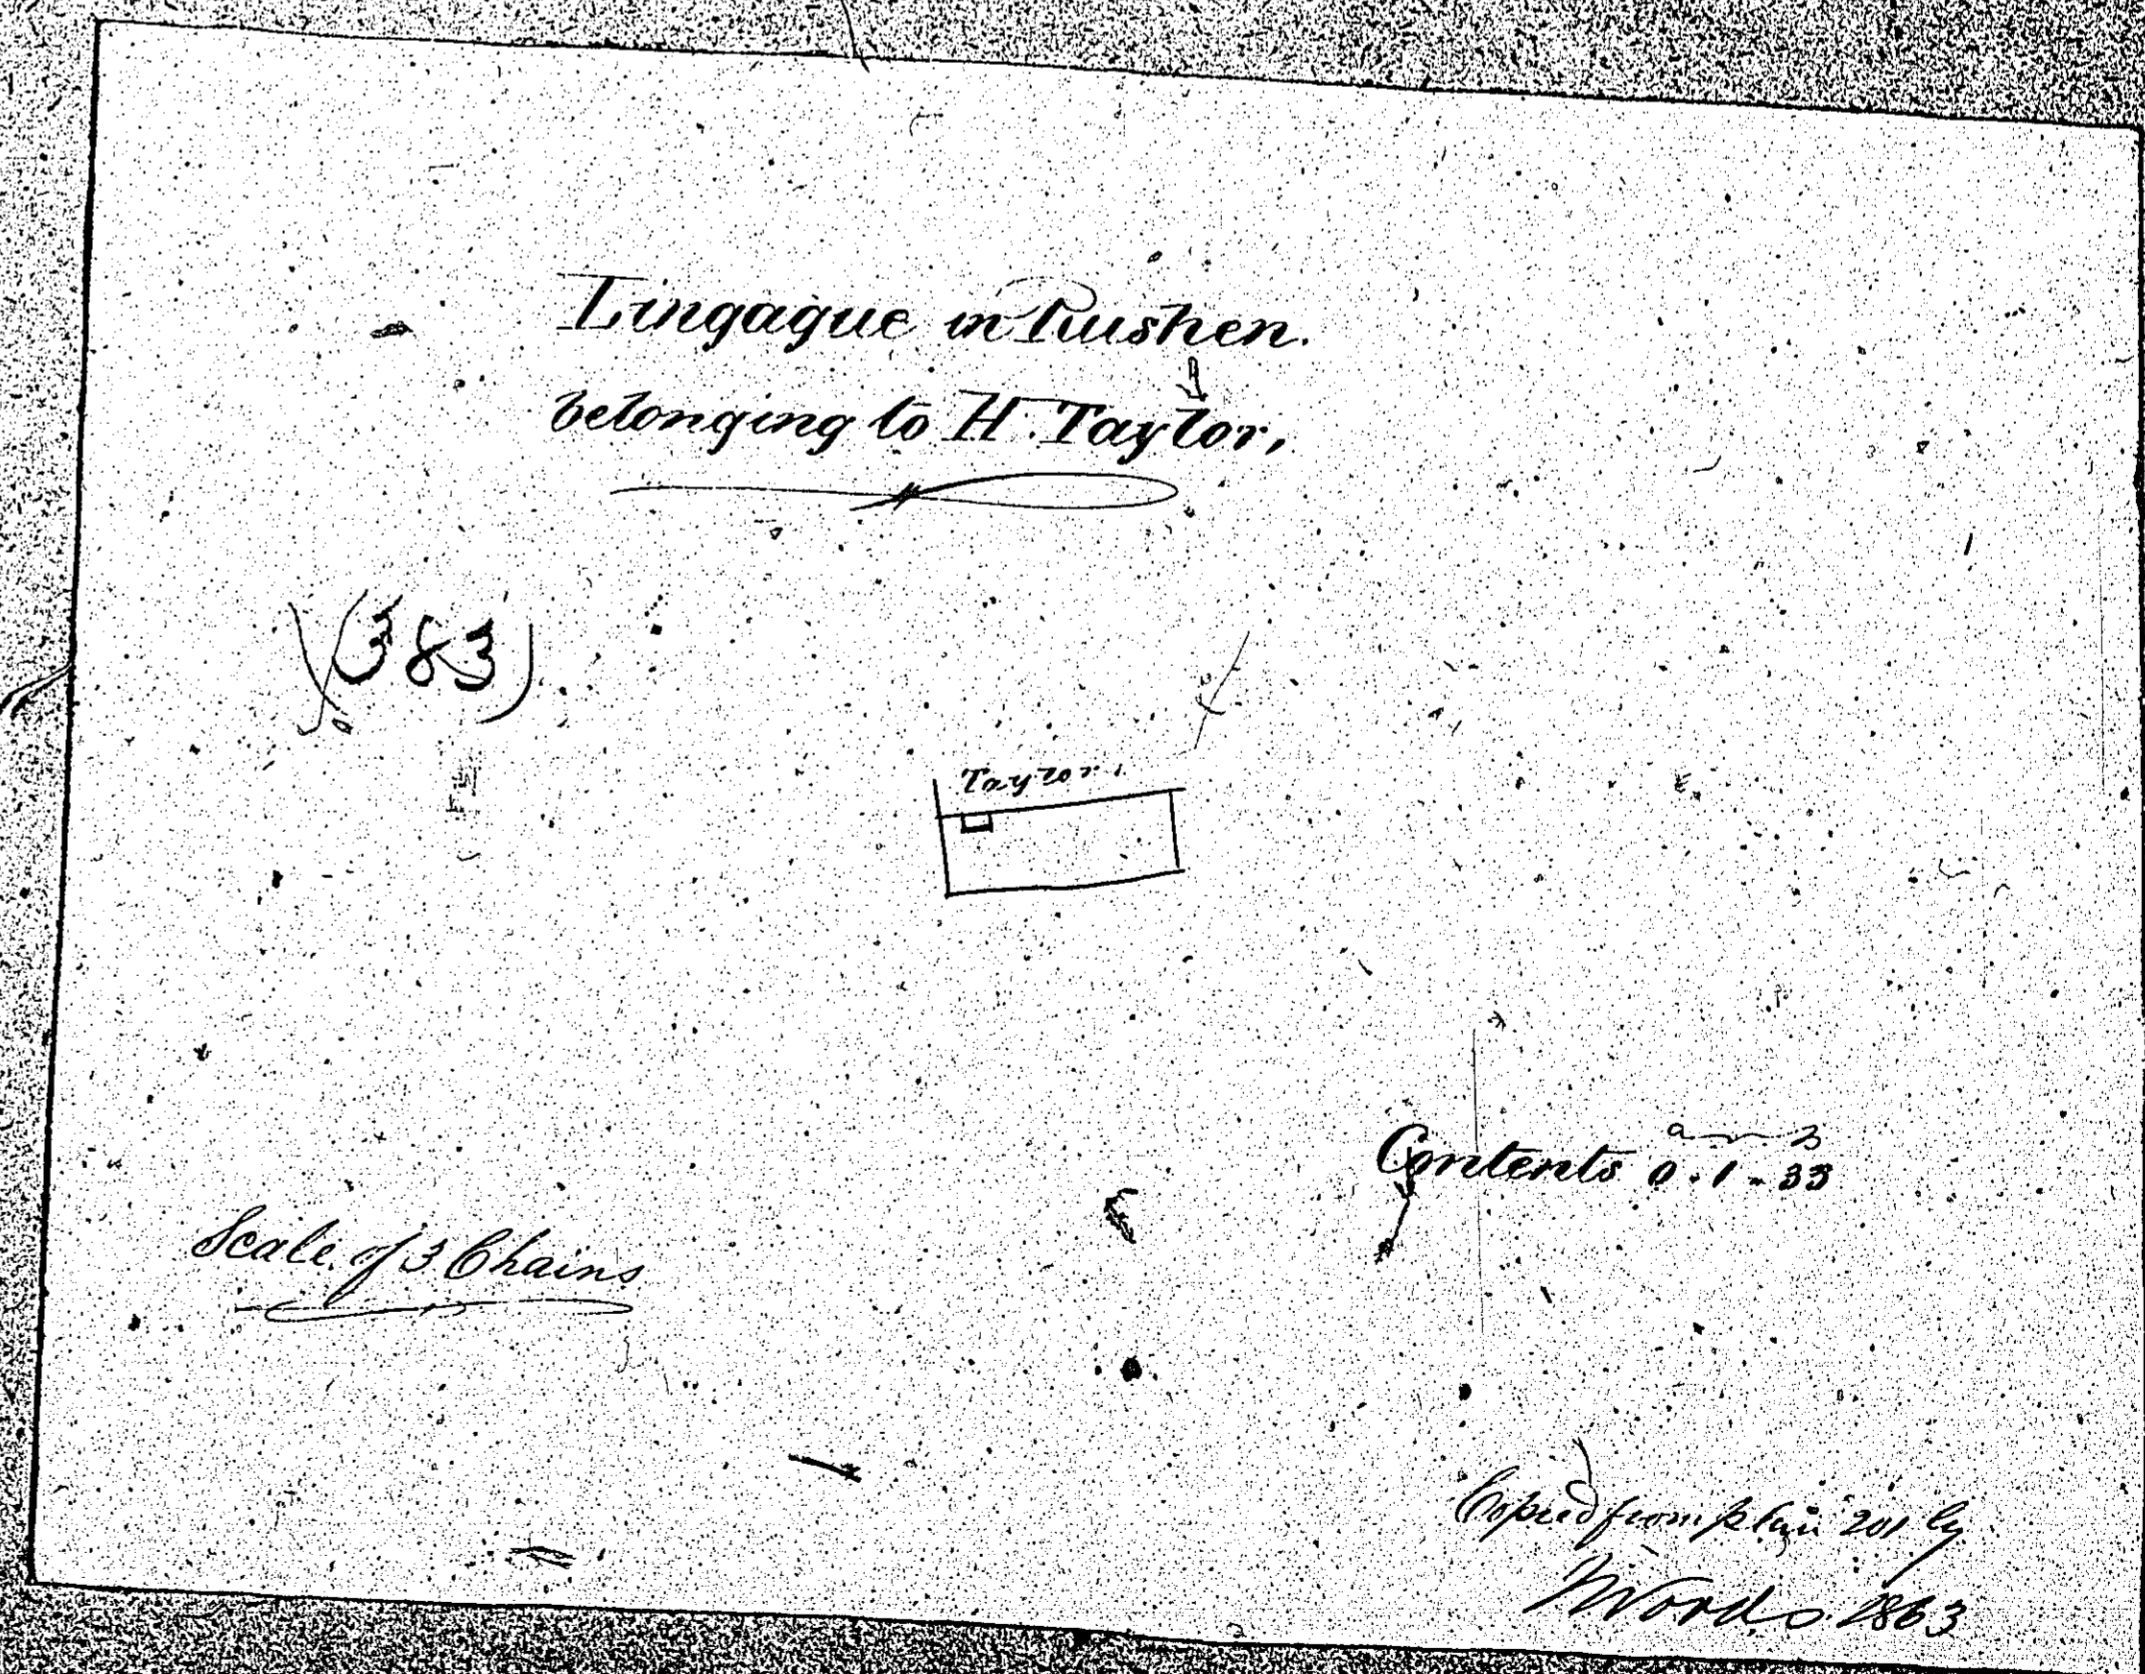 Lingague in Rushen.
belonging to H. Taylor,
(383)
Taylor
a r
Contents 0.1.33
Scale of 3 Chains
Copied from plan 201 by
1863